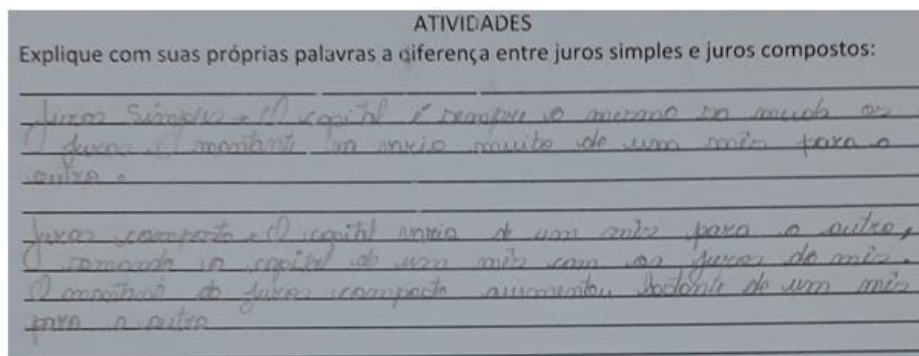 ATIVIDADES
Explique com suas próprias palavras a diferença entre juros simples e juros compostos:
Juros Simples → O capital é sempre o mesmo so muda os
juros. O montante varia muito de um mês para o
outro.
Juros composto → O capital varia de um mês para o outro,
o capital de um mês com os juros do mês.
O do juros composto aumentou bastante de um mês
para o outro